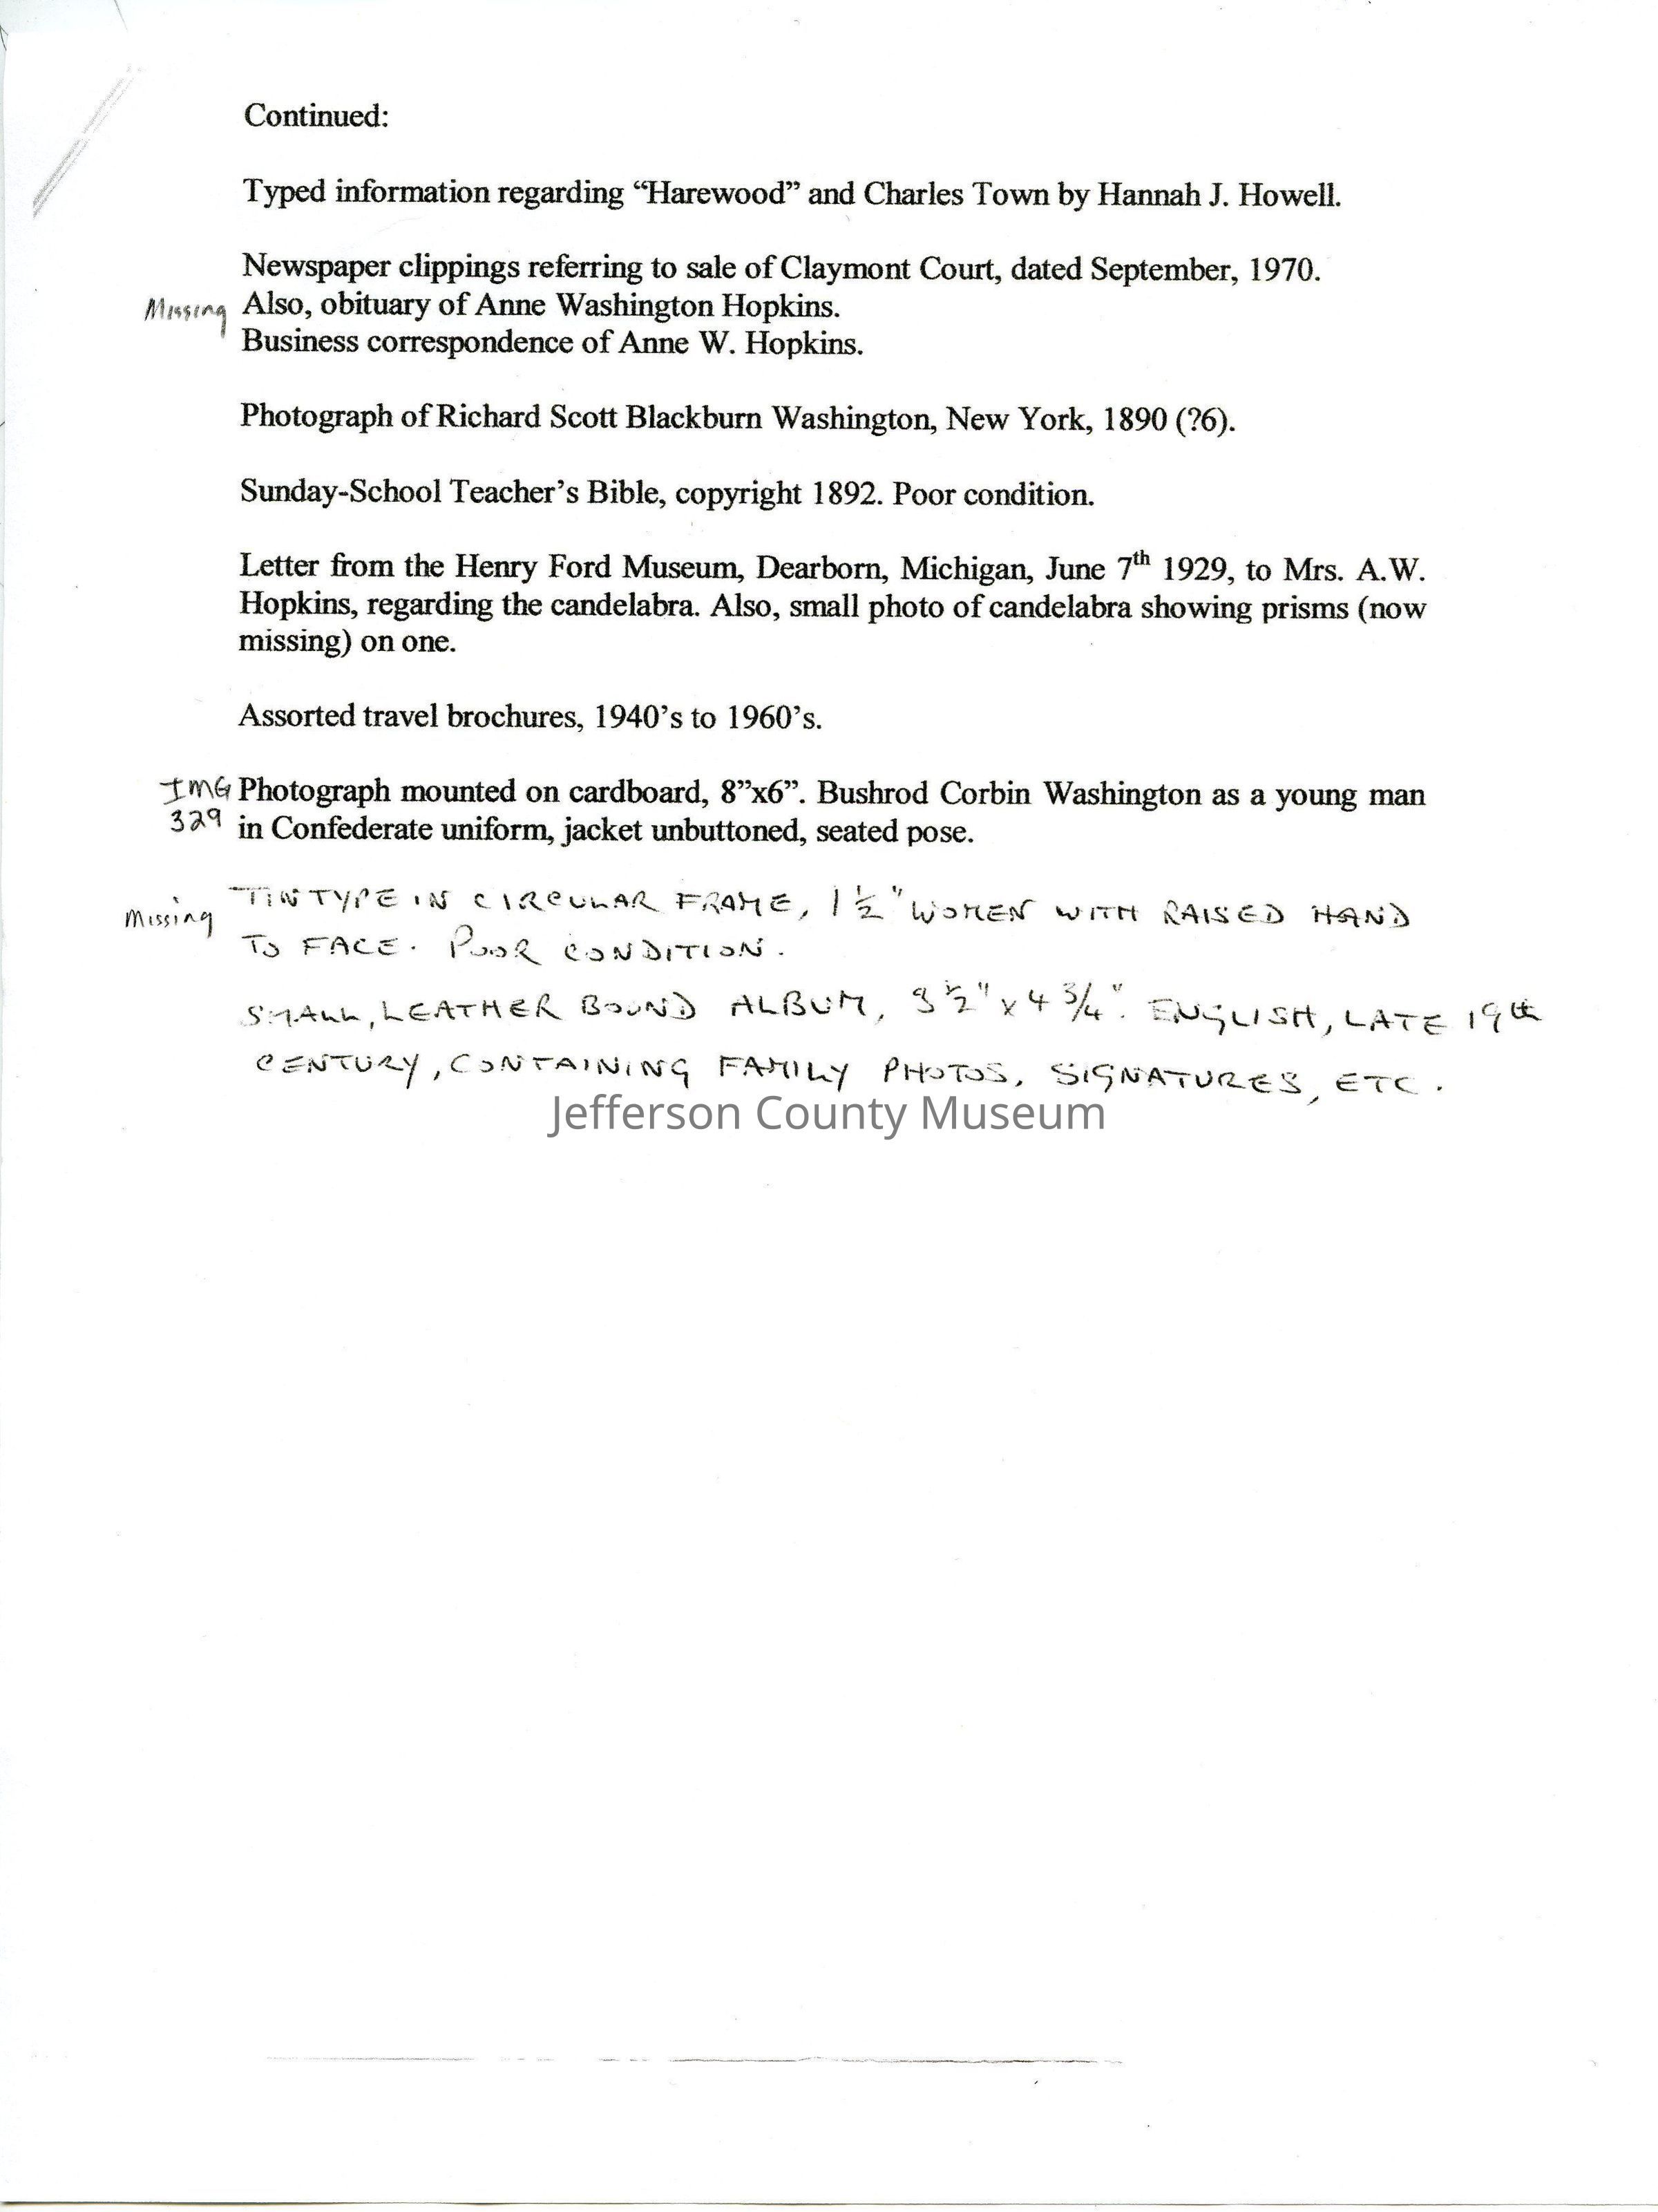 Continued:
Typed information regarding “Harewood” and Charles Town by Hannah J. Howell.
Newspaper clippings referring to sale of Claymont Court, dated September, 1970.
Missing Also, obituary of Anne Washington Hopkins.
Business correspondence of Anne W. Hopkins.
Photograph of Richard Scott Blackburn Washington, New York, 1890 (?6).
Sunday-School Teacher’s Bible, copyright 1892. Poor condition.
Letter from the Henry Ford Museum, Dearborn, Michigan, June 7th 1929, to Mrs. A.W.
Hopkins, regarding the candelabra. Also, small photo of candelabra showing prisms (now
missing) on one.
Assorted travel brochures, 1940’s to 1960’s.
IMG Photograph mounted on cardboard, 8”x6”. Bushrod Corbin Washington as a young man
329 in Confederate uniform, jacket unbuttoned, seated pose.
Missing TINTYPE IN CIRCULAR FRAME, 1 ½" WOMEN WITH RAISED HAND
TO FACE. POOR CONDITION.
SMALL, LEATHER BOUND ALBUM, 3 ½" x 4 ¾". ENGLISH, LATE 19th
CENTURY, CONTAINING FAMILY PHOTOS, SIGNATURES, ETC.
Jefferson County Museum